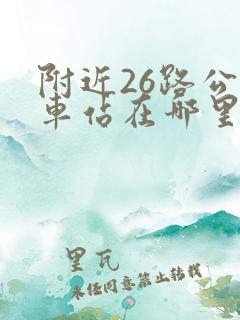 附近26路公
車佔在哪里
里瓦
未经同意禁止转载